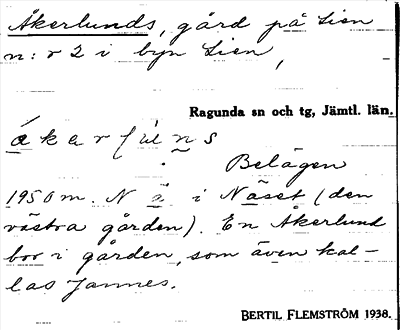 Åkerlunds, gård på Lien
n:r 2 i byn Lien,
Ragunda sn och tg, Jämtl. län.
Belägen
1950 m. N 2 i Näset (den
västra gården). En Åkerlund
bor i gården, som även kal-
las Jannes.
BERTIL FLEMSTRÖM 1938.